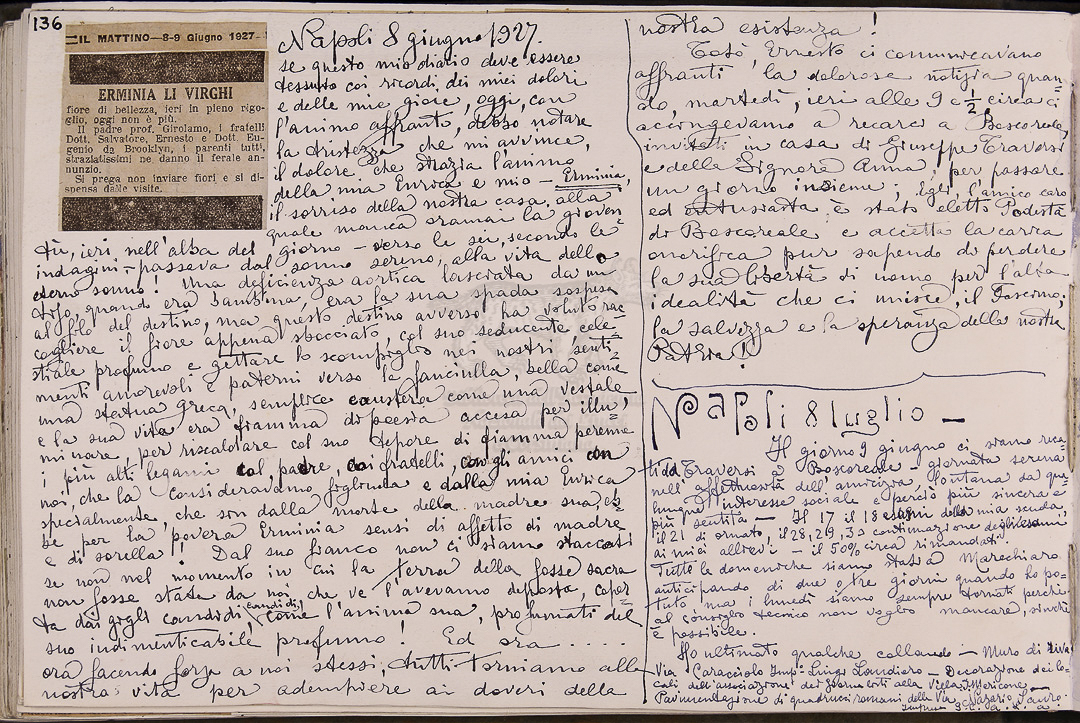 136
IL MATTINO—8-9 Giugno 1927-
ERMINIA LI VIRGHI
fiore di bellezza, ieri in pleno rigo-
glio, oggi non è più.
Il padre prof. Girolamo, i fratelli
Dott. Salvatore, Ernesto e Dott. Eu-
genio da Brooklyn, i parenti tutti,
straziatissimi ne danno il ferale an-
nunzio.
Si prega non inviare fiori e si di-
spensa dalle visite.
Napoli 8 giugno 1927.
se questo mio diario deve essere
tessuto coi ricordi dei miei dolori
e delle mie gioie, oggi, con
l'animo affranto, debbo notare
la tristezza che mi avvince,
il dolore che strazia l'animo
della mia Enrica e mio — Erminia,
il sorriso della nostra casa, alla
quale manca oramai la gioven
tù, ieri nell'alba del giorno — verso le sei, secondo le
indagini — passava dal sonno sereno, alla vita dello
eterno sonno! Una deficienza aortica lasciata da un
tifo, quando era bambina, era la sua spada sospesa
al filo del destino, ma questo destino avverso ha voluto rac
cogliere il fiore appena sbocciato, col suo seducente cele=
stiale profumo e gettare lo scompiglio nei nostri senti
menti amorevoli e paterni verso la fanciulla, bella come
una statua greca, semplice e austera come una vestale
e la sua vita era fiamma di poesia accesa per illu=
minare, per riscaldare col suo tepore di fiamma perenne
i più alti legami col padre, coi fratelli, con gli amici con
noi, che la consideravamo figliuola e dalla mia Enrica
specialmente, che son dalla morte della madre sua, eb
be per la povera Erminia sensi di affetto di madre
e di sorella! Dal suo fianco non ci siamo staccati
se non nel momento in cui la terra della fossa sacra
non fosse stata da noi che ve l'avevamo deposta, coper=
ta dai gigli candidi, candidi, come l'anima sua, profumati del
suo indimenticabile profumo! Ed ora . . . . .
ora facendo forza a noi stessi, tutti torniamo alla
nostra vita per adempiere ai doveri della
nostra esistenza!
Totò, Ernesto ci comunicavano
affranti, la dolorosa notizia quan
do, martedì, ieri alle 9 e ½ circa ci
accingevamo a recarci a Boscoreale,
invitati in casa di Giuseppe Traversi
e della Signora Anna, per passare
un giorno insieme; Egli l'amico caro
ed entusiasta è stato eletto Podestà
di Boscoreale e accetta la carica
onorifica pur sapendo di perdere
la sua libertà di uomo per l'alta
idealità che ci unisce, il Fascismo,
la salvezza e la speranza della nostra
Patria!
Napoli 8 luglio —
Il giorno 9 giugno ci siamo reca
ti da Traversi a Boscoreale — giornata serena
nell'affettuosità dell'amicizia, lontana da qua
lunque interesse sociale e perciò più sincera e
più sentita — Il 17 il 18 esami della mia scuola,
il 21 di ornato, il 28, 29, 30 continuazione degli esami
ai miei allievi — il 50% circa rimandati.
Tutte le domeniche siamo stati a Marechiaro
anticipando di due o tre giorni quando ho po=
tuto ma i lunedì siamo sempre tornati perchè
al consiglio tecnico non voglio mancare, finchè
è possibile.
Ho ultimato qualche collaudo — Muro di Via
Via Caracciolo Imp: Luigi Londiero — Decorazione dei lo=
cali dell'associazione dei giornalisti alla Villa
Pavimentazione di quadrucci romani della Via Nazario Sauro